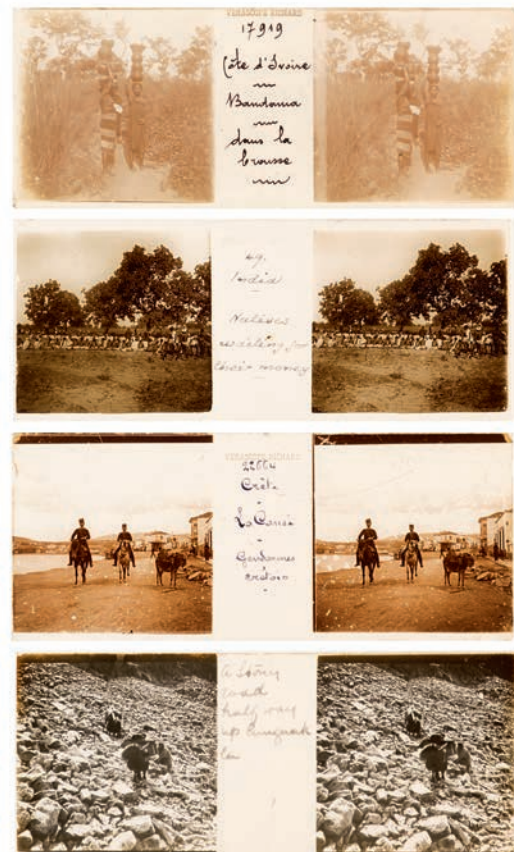 VERASCOPE RICHARD
17919
Côte d'Ivoire
Bandama
dans la
brousse
49.
India
Natives
waiting for
their money
VERASCOPE RICHARD
22664
Crète
La Canée
Gendarmes
crétois
A Stony
road
half way
up
La